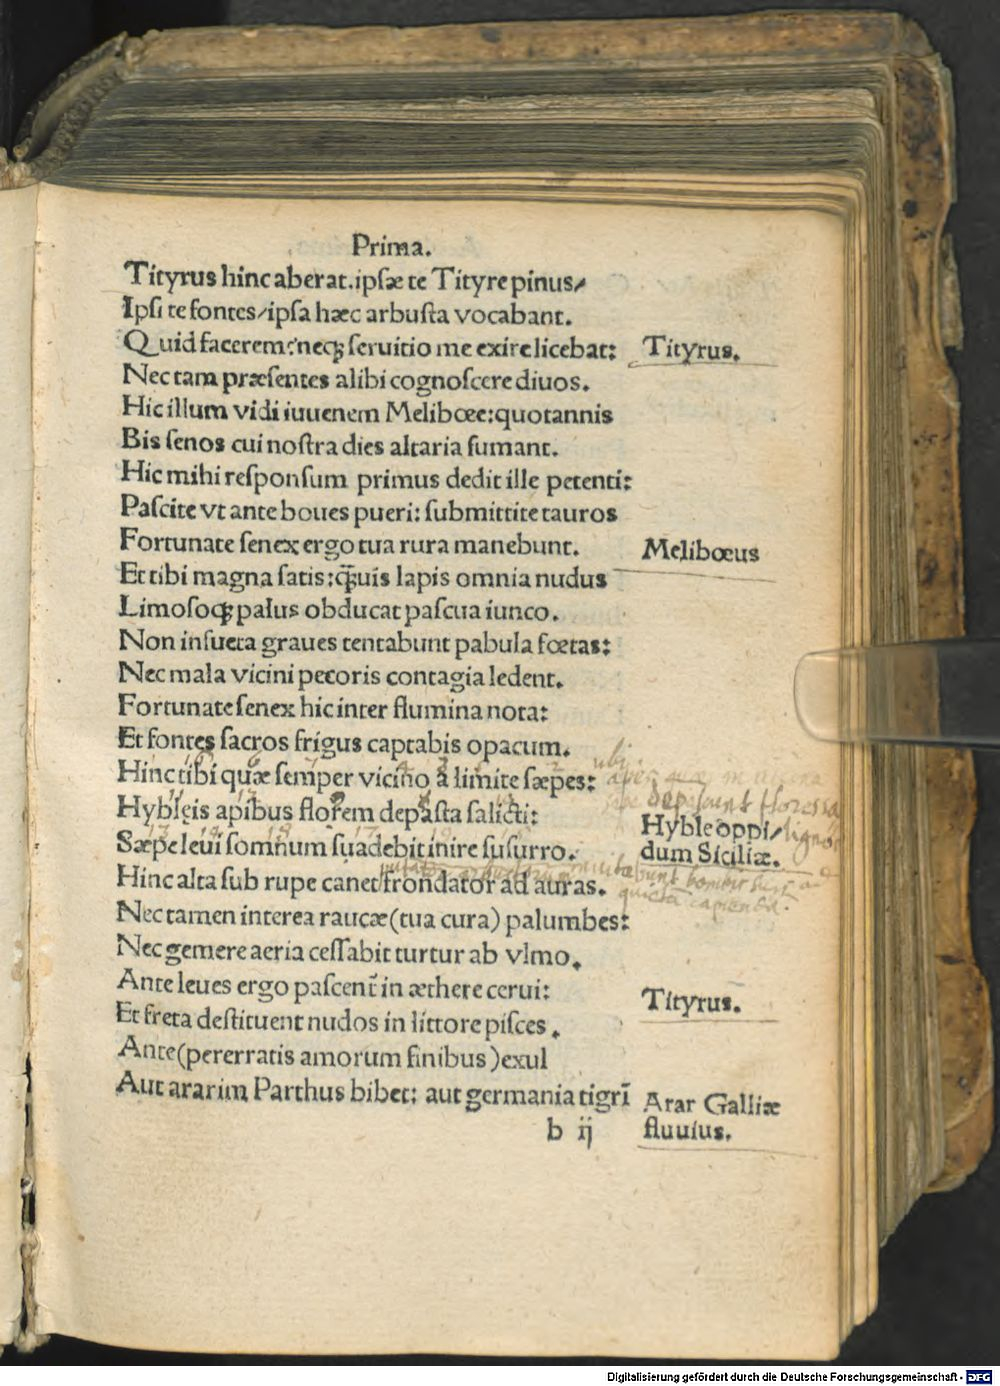 Prima.
Tityrus hinc aberat. ipſæ te Tityre pinus/
Ipſi te fontes/ipſa hæc arbuſta vocabant.
Quid facerem? neqꝫ ſeruitio me exire licebat: Tityrus.
Nec tam præſentes alibi cognoſcere diuos.
Hic illum vidi iuuenem Melibœe: quotannis
Bis ſenos cui noſtra dies altaria fumant.
Hic mihi reſponſum primus dedit ille petenti:
Paſcite vt ante boues pueri: ſubmittite tauros
Fortunate ſenex ergo tua rura manebunt. Melibœus
Et tibi magna ſatis: q̃uis lapis omnia nudus
Limoſoqꝫ palus obducat paſcua iunco.
Non inſueta graues tentabunt pabula fœtas:
Nec mala vicini pecoris contagia ledent.
Fortunate ſenex hic inter flumina nota:
Et fontes ſacros frigus captabis opacum.
Hinc tibi quæ ſemper vicino a limite ſæpes: ubi
Hyblęis apibus florem depaſta ſalicti: depascunt
Hyble oppi/
Sæpe leui ſomnum ſuadebit inire ſuſurro. dum Siciliæ.
Hinc alta ſub rupe canet frondator ad auras.
Nec tamen interea raucæ (tua cura) palumbes:
Nec gemere aeria ceſſabit turtur ab vlmo.
Ante leues ergo paſcent̃ in æthere cerui: Tityrus.
Et freta deſtituent nudos in littore piſces.
Ante (pererratis amorum finibus) exul
Aut ararim Parthus bibet: aut germania tigrĩ Arar Galliæ
b ij fluuius.
Digitalisierung gefördert durch die Deutsche Forschungsgemeinschaft - DFG